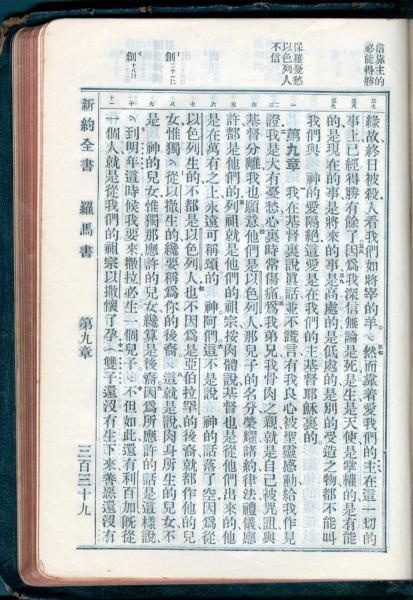 信靠主的
必能得勝
保羅憂愁
以色列人
不信
緣故終日被殺人看我們如將宰的羊。然而靠着愛我們的主在這一切的
事上已經得勝有餘了因爲我深信無論是死是生是天使是掌權的是有能
的是現在的事是將來的事是高處的是低處的是別的受造之物都不能叫
我們與 神的愛隔絕這愛是在我們的主基督耶穌裏的
第九章 我在基督裏說眞話並不謊言有我良心被聖靈感動給我作見
證我是大有憂愁心裏時常傷痛爲我弟兄我骨肉之親就是自己被咒詛與
基督分離我也願意他們是以色列人那兒子的名分榮耀諸約律法禮儀應
許都是他們的列祖就是他們的祖宗按肉體說基督也是從他們出來的他
是在萬有之上永遠可稱頌的 神阿們這不是說 神的話落了空因爲從
以色列生的不都是以色列人也不因爲是亞伯拉罕的後裔就都作他的兒
女惟獨從以撒生的纔要稱爲你的後裔這就是說肉身所生的兒女不
是 神的兒女惟獨那應許的兒女纔算是後裔因爲所應許的話是這樣說
到明年這時候我要來撒拉必生一個兒子不但如此還有利百加旣從
一個人就是從我們的祖宗以撒懷了孕(雙子還沒有生下來善惡還沒有
新約全書 羅馬書 第九章 三百三十九